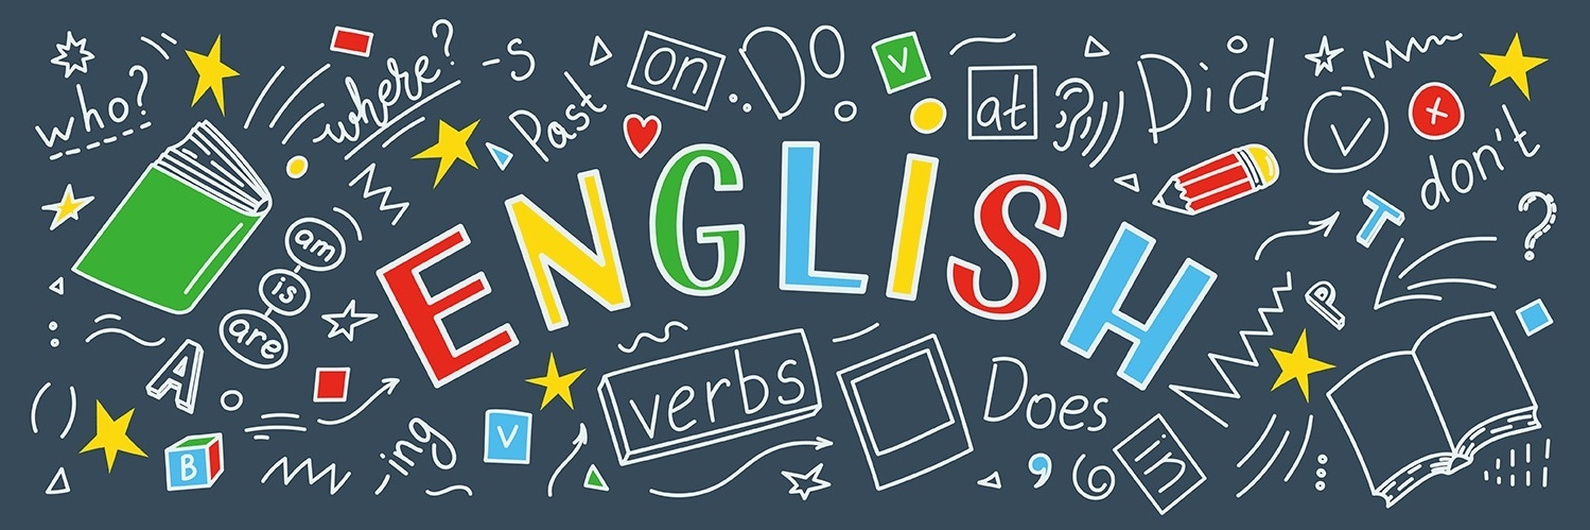 who?
where?
-s
Past
on
Do
v
at
Did
don't
ENGLISH
am
is
are
T
P
A
B
-ing
v
verbs
Does
in